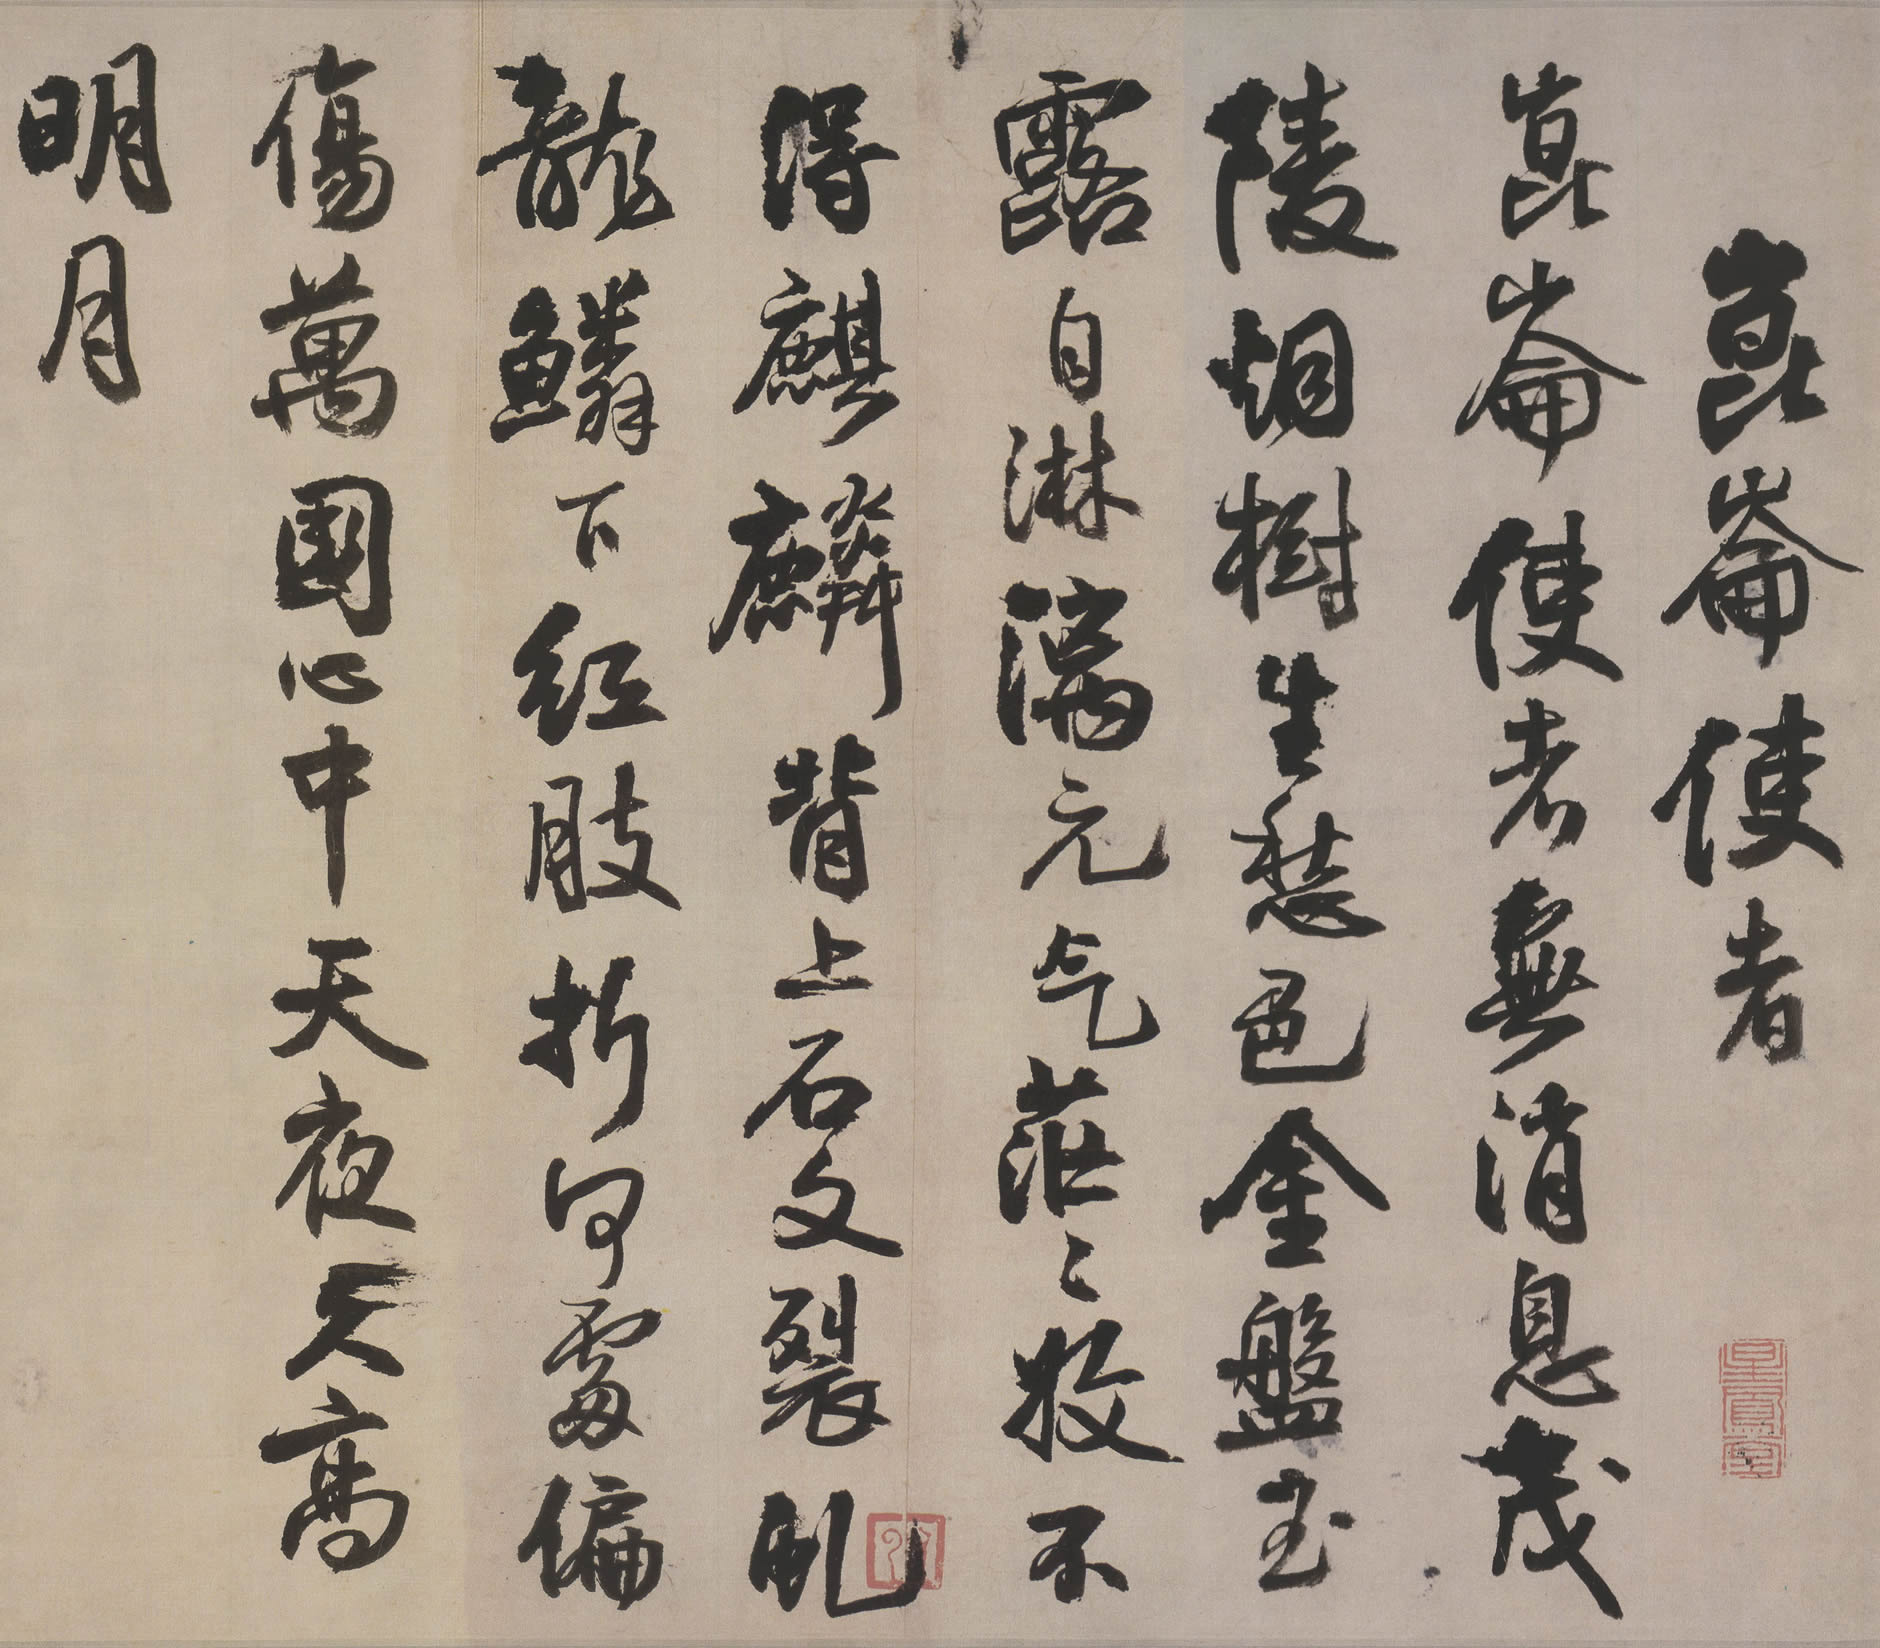 崑崙使者
崑崙使者無消息茂
陵烟樹生愁色金盤玉
露自淋漓元气茫〻收不
得麒麟背上石文裂虬
龍鱗下紅肢折何處偏
傷萬國心中天夜久高
明月